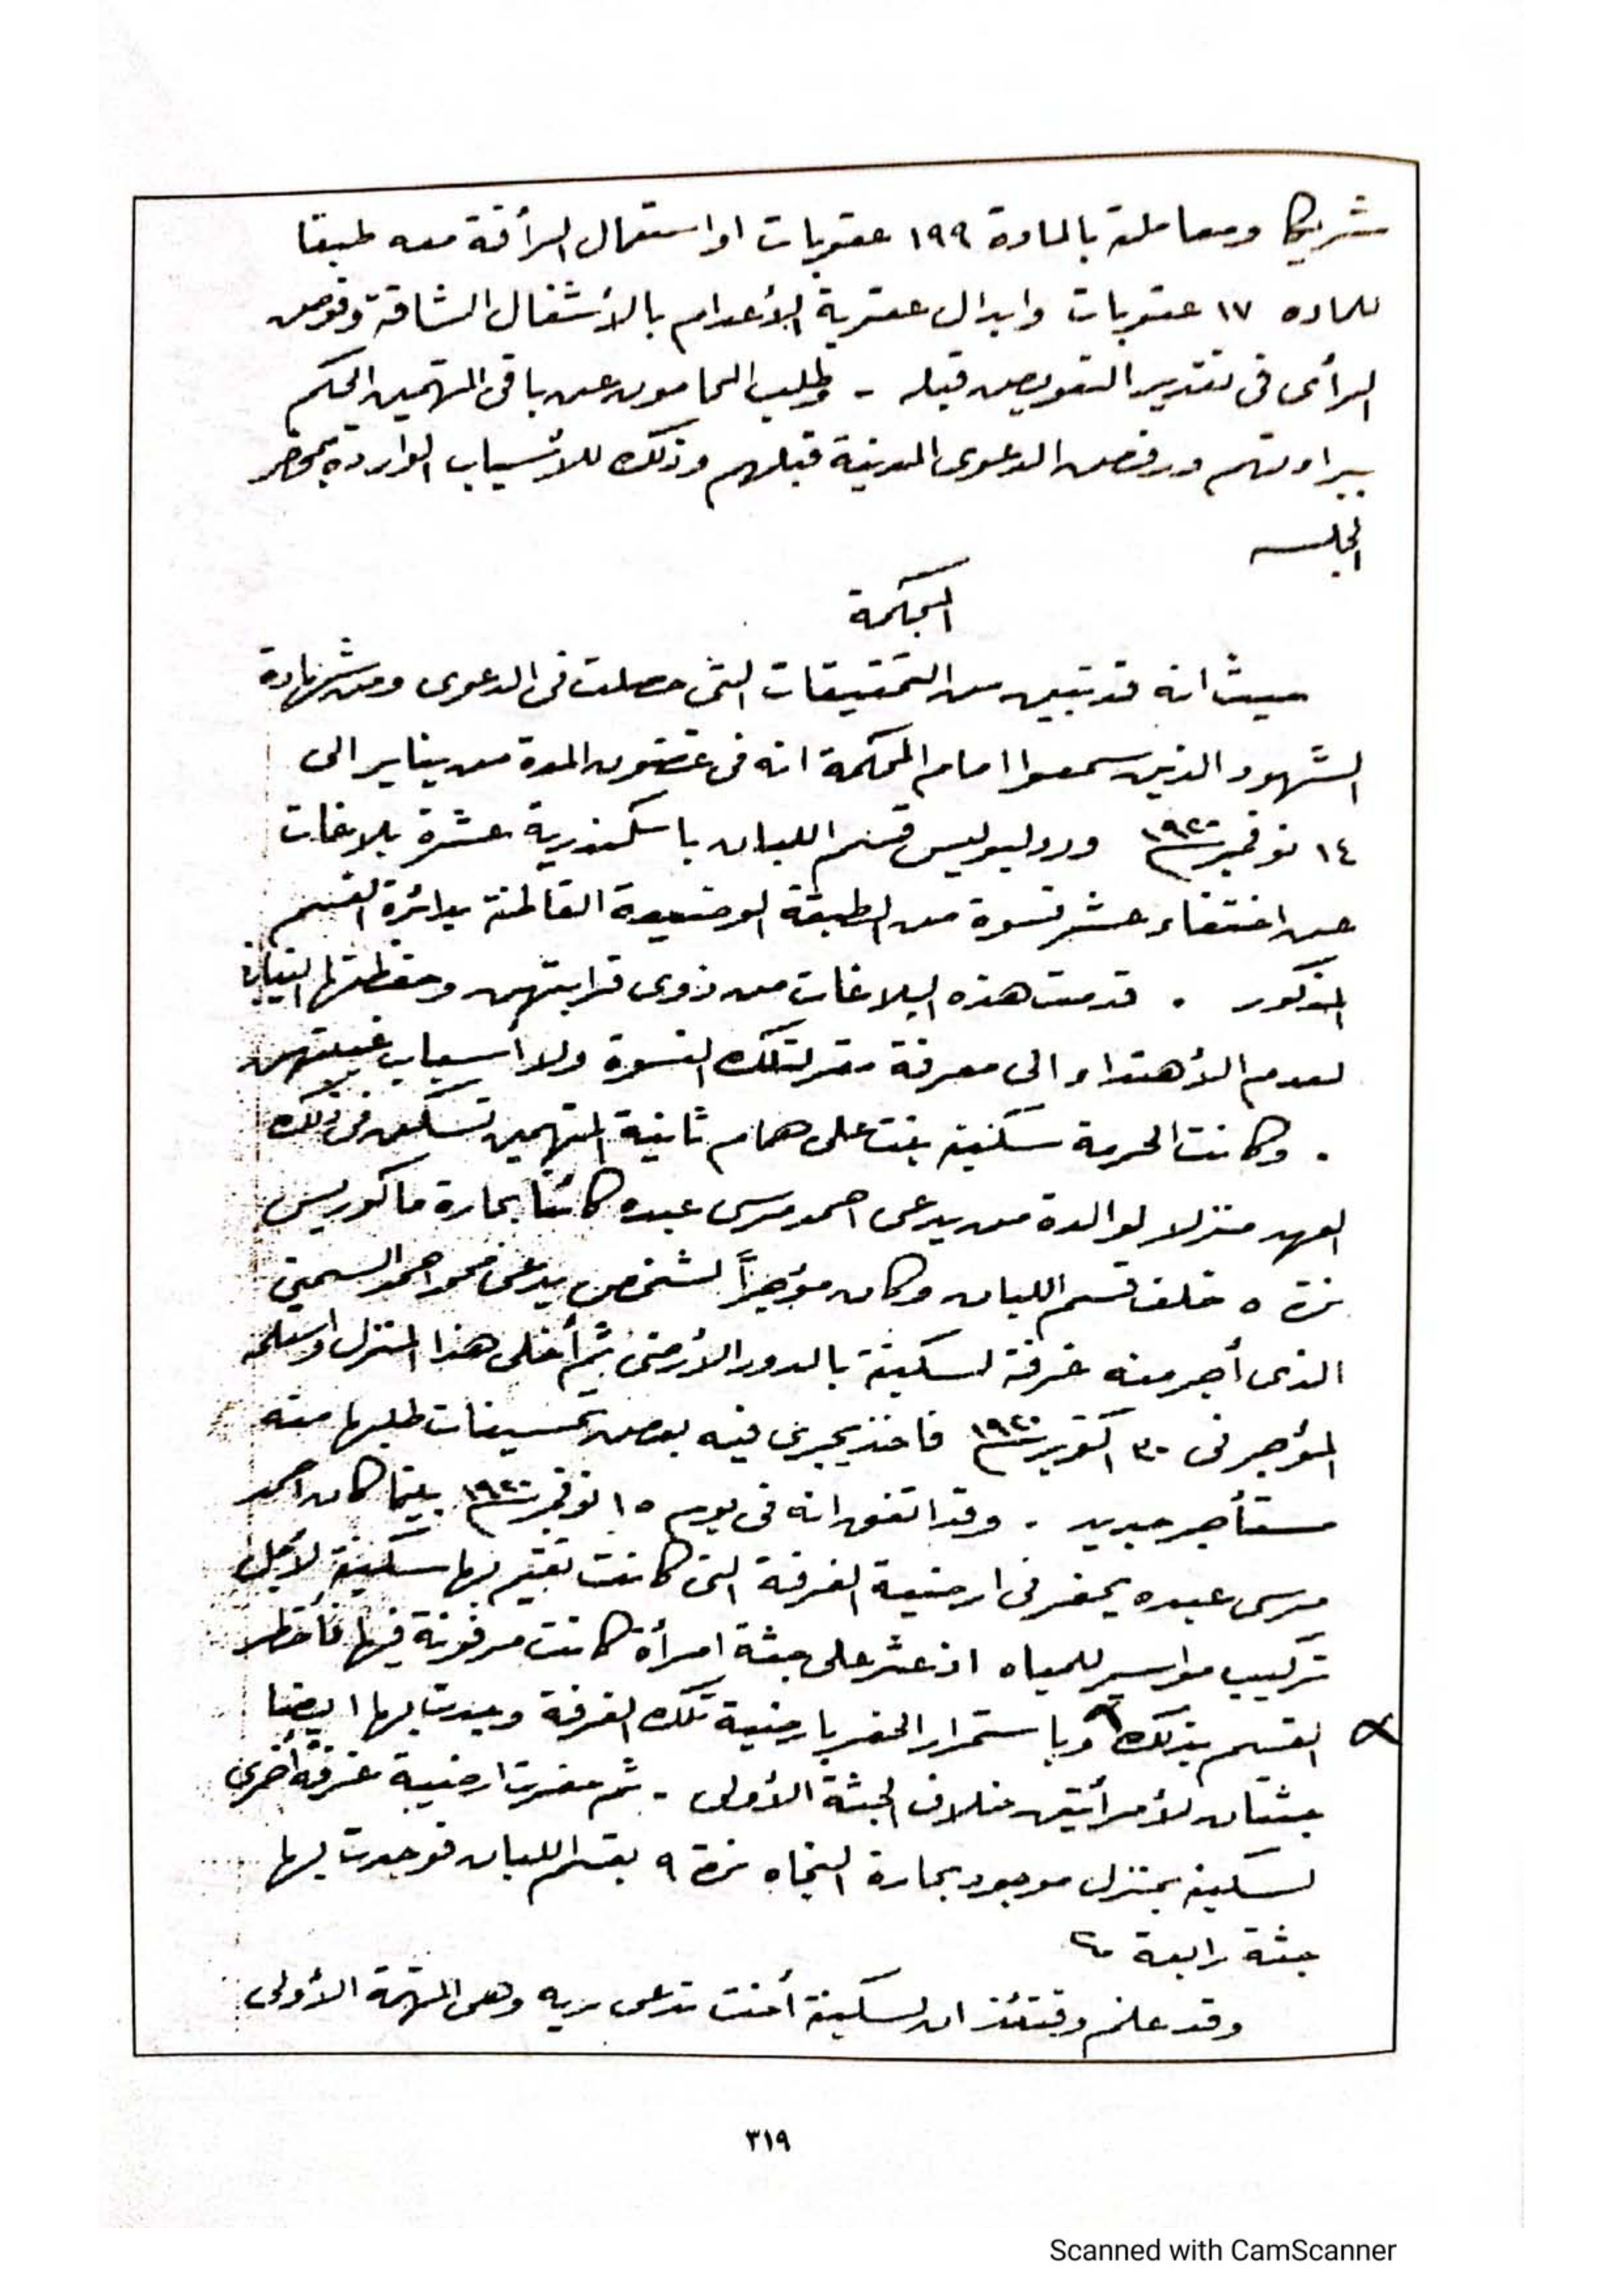 شريكا ومعاملته بالمادة ١٩٩ عقوبات او استعمال الرأفة معه طبقا
للماده ١٧ عقوبات وابدال عقوبة الأعدام بالأشغال الشاقة وفوض
الرأى فى تقدير التعويض قبله - وطلب المحامون عن باقى المتهمين الحكم
ببراءتهم ورفض الدعوى المدنية قبلهم وذلك للأسباب الواردة بمحضر
الجلسه
المحكمة
حيث انه قد تبين من التحقيقات التى حصلت فى الدعوى ومن شهادة
الشهود الذين سمعوا امام المحكمة انه فى غضون المدة من يناير الى
١٤ نوفمبر سنة ١٩٢٠ ورد لبوليس قسم اللبان باسكندرية عشرة بلاغات
عن اختفاء عشر نسوة من الطبقة الوضيعة القاطنة بدائرة القسم
المذكور . قدمت هذه البلاغات من ذوى قرابتهن وحفظتها النيابة
لعدم الأهتداء الى معرفة مقر لتلك النسوة ولا أسباب غيبتهن
. وكانت الحرمة سكينه بنت على همام ثانية المتهمين تسكن فى ذلك
العهد منزلا لوالدة من يدعى احمد مرسى عبده كائنا بحارة ماكوريس
نمرة ٥ خلف قسم اللبان وكان مؤجراً لشخص يدعى محمد احمد السمنى
الذى أجر منه غرفة لسكينة بالدور الأرضى ثم أخلى هذا المنزل واستلمه
المؤجر فى ٣٠ اكتوبر سنة ١٩٢٠ فاخذ يجرى فيه بعض تحسينات طلبها منه
مستأجر جديد . وقد اتفق انه فى يوم ١٥ نوفمبر سنة ١٩٢٠ بينما كان احمد
مرسى عبده يحفر فى ارضية الغرفة التى كانت تقيم بها سكينة لأجل
تركيب مواسير للمياه اذ عثر على جثة امرأة كانت مدفونة فيها فأخطر
القسم بذلك وباستمرار الحفر بارضية تلك الغرفة وجدت بها ايضا
جثتان لأمرأتين خلاف الجثة الأولى - ثم حفرت ارضية غرفة أخرى
لسكينه بمنزل موجود بحارة النجاه نمرة ٩ بقسم اللبان فوجدت بها
جثة رابعة
وقد علم وقتئذ ان لسكينة أخت تدعى ريه وهى المتهمة الأولى
٣١٩
Scanned with CamScanner